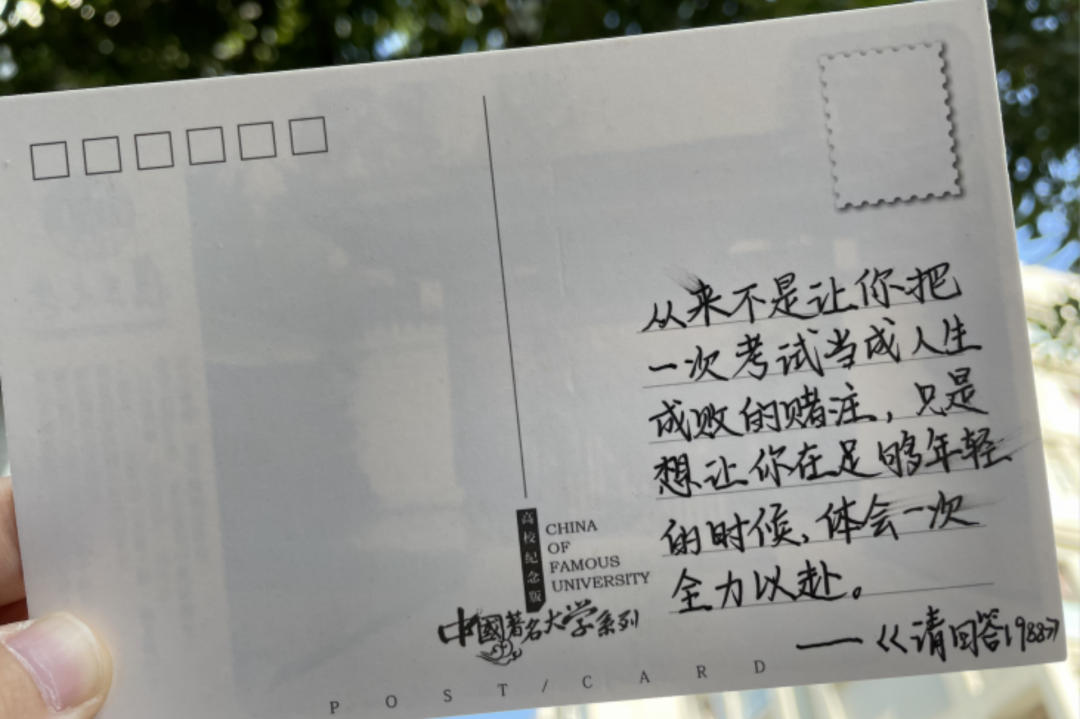 从来不是让你把
一次考试当成人生
成败的赌注，只是
想让你在足够年轻
的时候，体会一次
全力以赴。
——《请回答1988》
高校纪念版
CHINA
OF
FAMOUS
UNIVERSITY
中國著名大学系列
POST/CARD